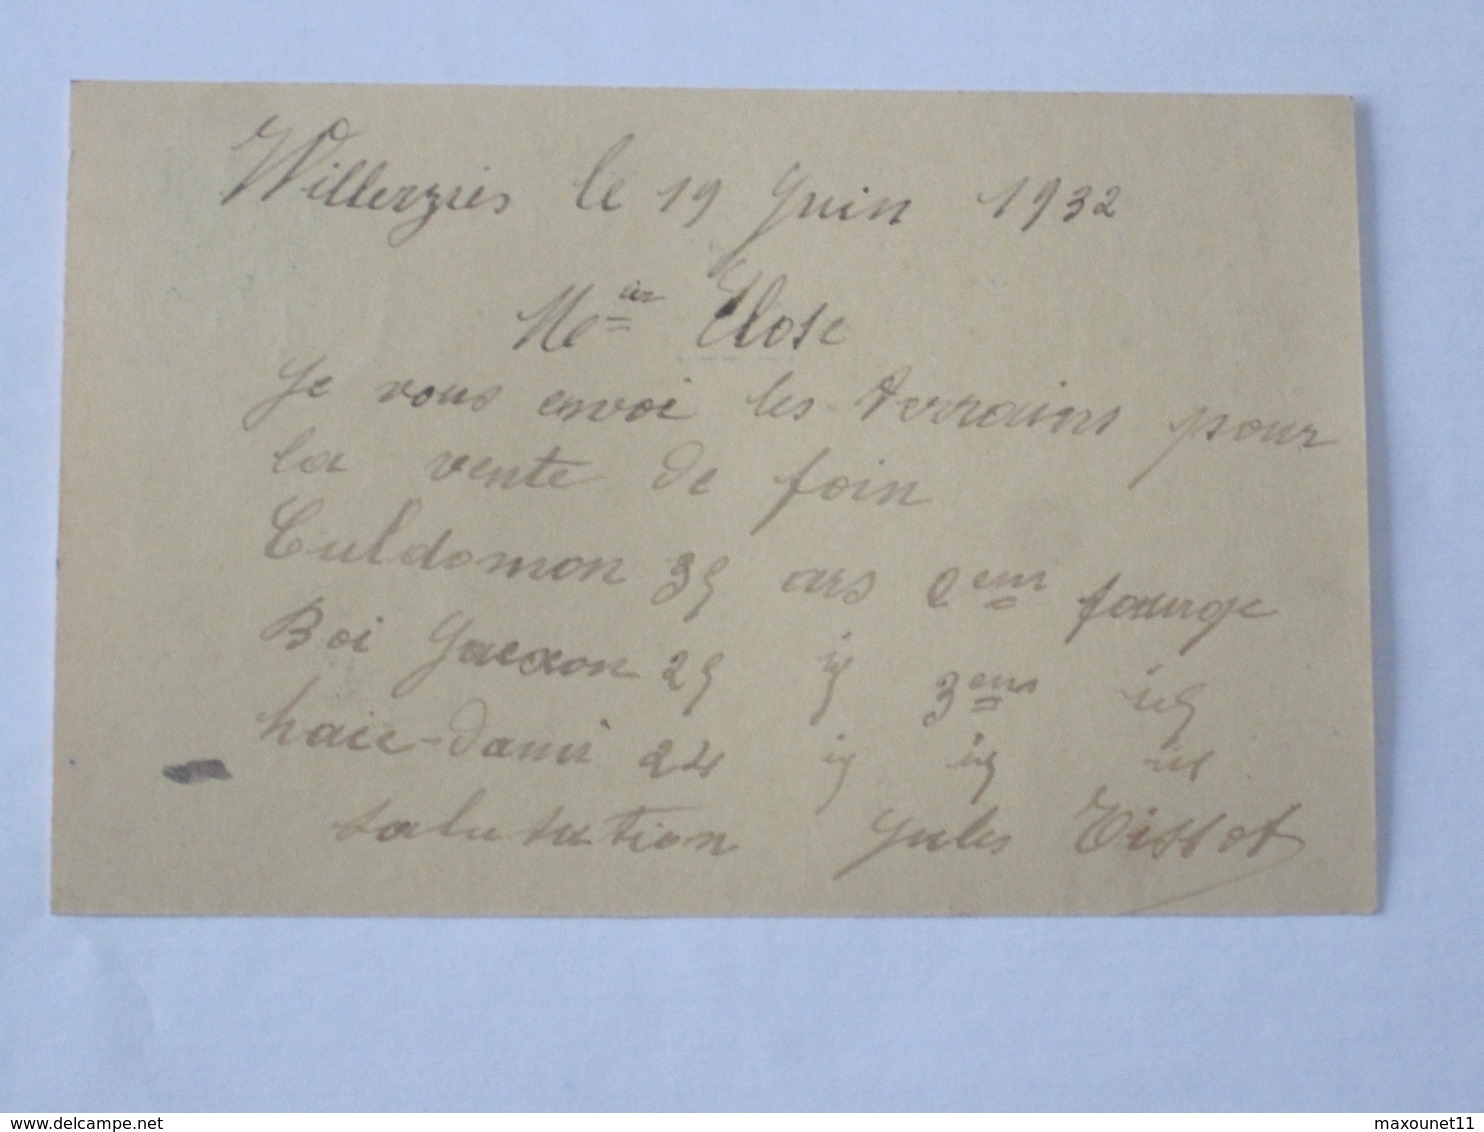 Willerzies le 19 Juin 1932
Close
Je vous envoi les terrains pour
la vente de foin
Culdomon 35 ars 2em fourge
Boi 25 ig 3em
haie-damé 24 ig ig
salutution Jules Tissot
delcampe.net
maxounet11